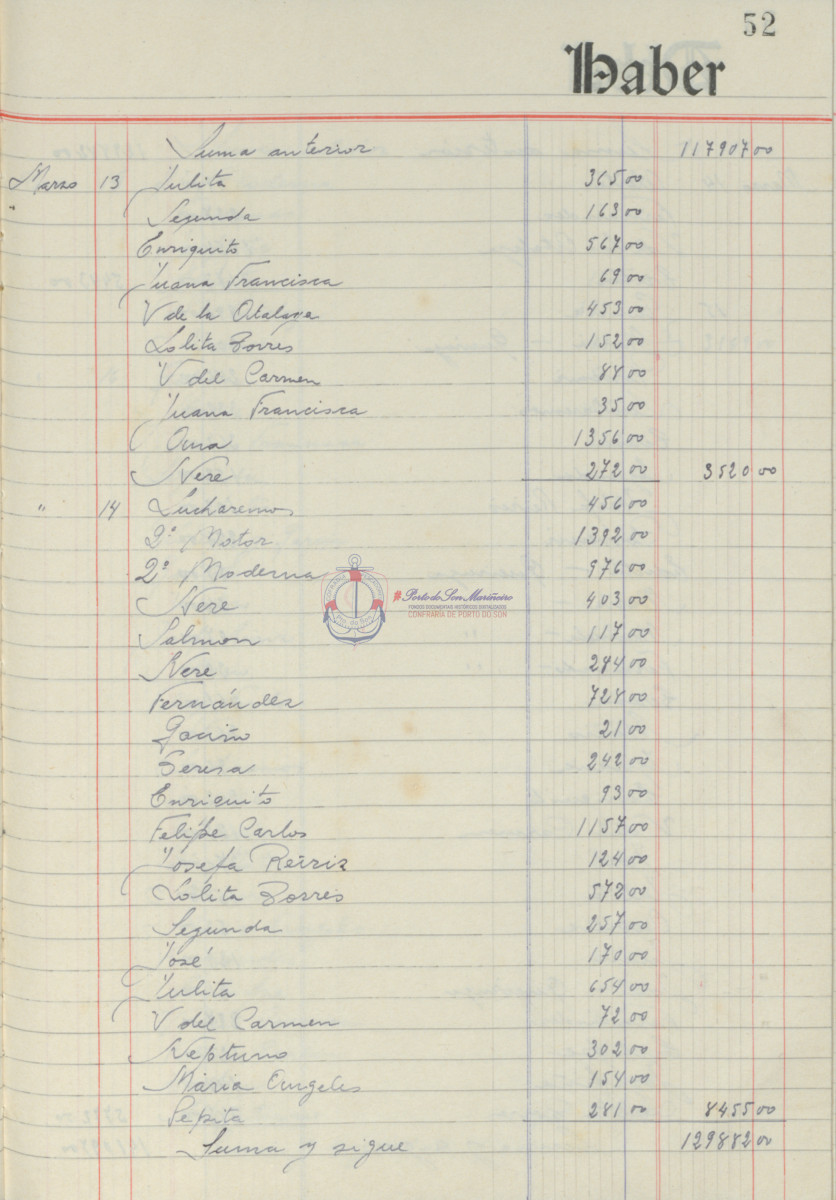 52
Haber
Suma anterior 117907 00
Marzo 13 Julita 365 00
" Segunda 163 00
Enriquito 567 00
Juana Francisca 69 00
V de la Atalaya 453 00
Lolita Torres 152 00
V del Carmen 88 00
Juana Francisca 35 00
Ana 1356 00
Nere 272 00 3520 00
" 14 Lucharemos 456 00
2º Motor 1392 00
2º Moderna 976 00
Nere 403 00
#Porto do Son Mariñeiro
FONDOS DOCUMENTAIS HISTÓRICOS DIXITALIZADOS
CONFRARÍA DE PORTO DO SON
Salmon 117 00
Nere 284 00
Fernández 728 00
21 00
Teresa 242 00
Enriquito 93 00
Felipe Carlos 1157 00
Josefa Reiriz 124 00
Lolita Torres 572 00
Segunda 257 00
José 170 00
Julita 654 00
V del Carmen 72 00
Neptuno 302 00
Maria Angeles 154 00
Pepita 281 00 8455 00
Suma y sigue 129882 00